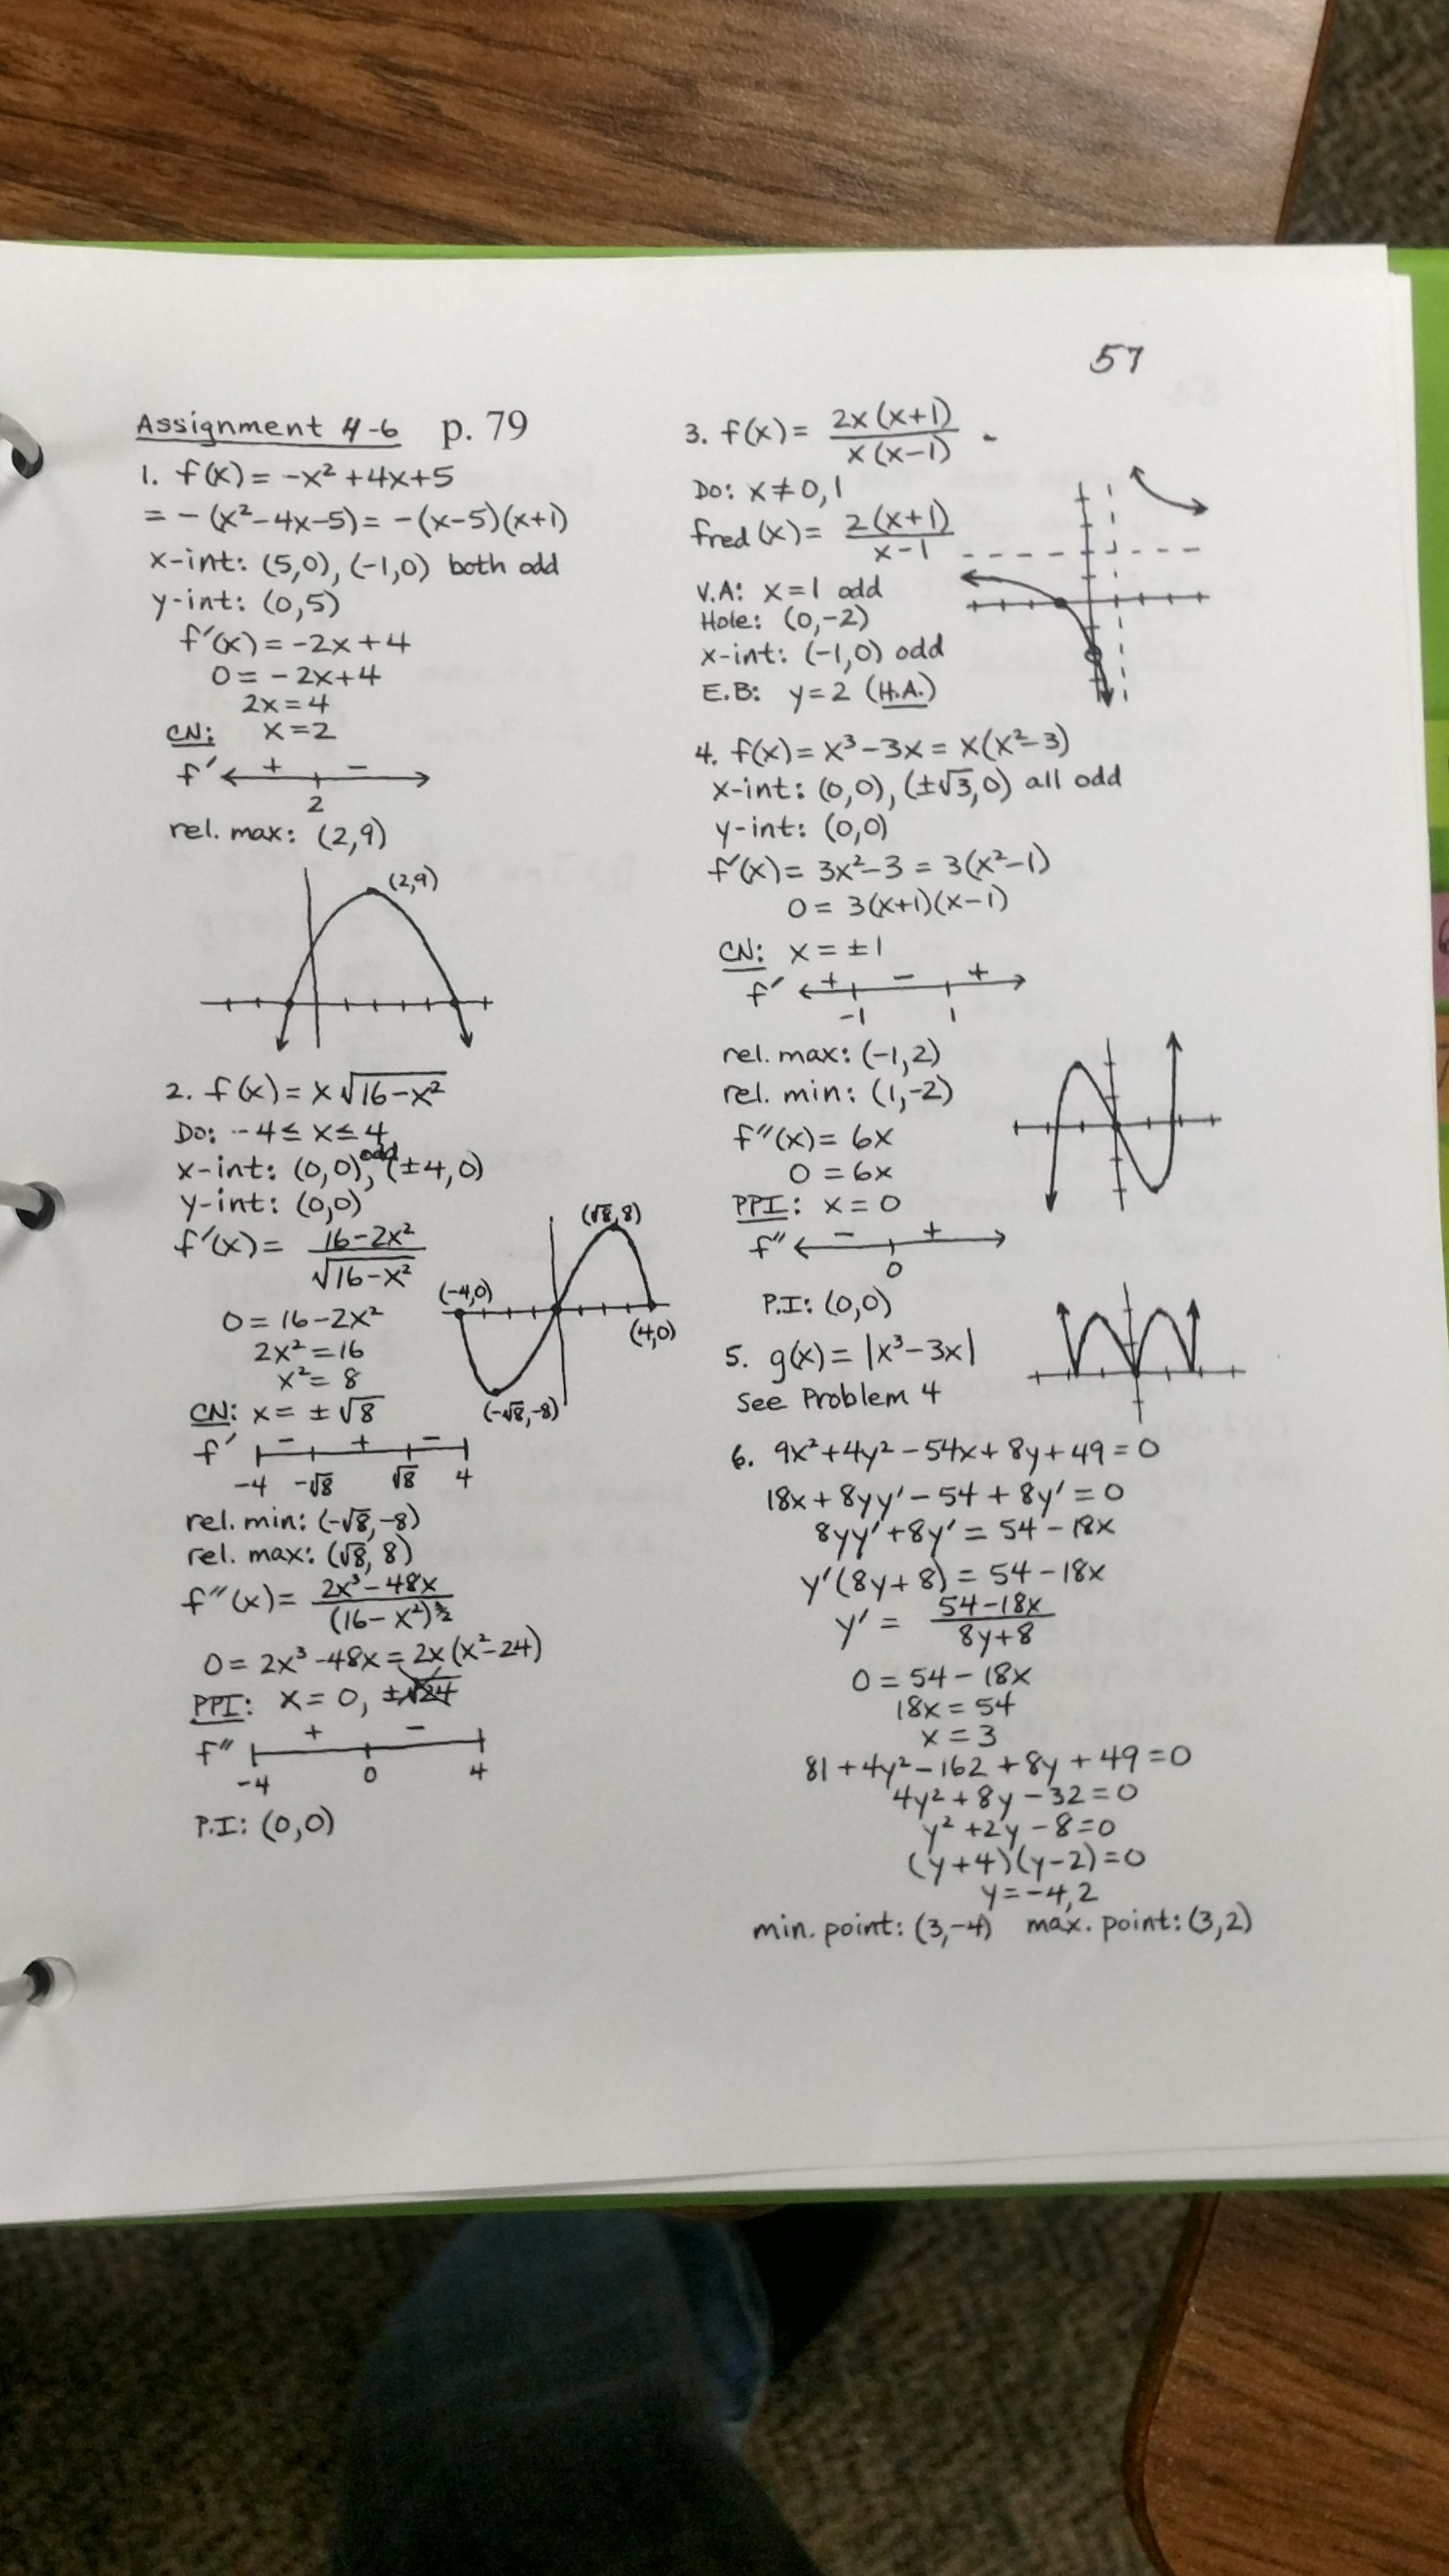 57
Assignment 4-6 p. 79
1. f(x) = -x² + 4x + 5
= -(x² - 4x - 5) = -(x-5)(x+1)
x-int: (5,0), (-1,0) both odd
y-int: (0,5)
f'(x) = -2x + 4
0 = -2x + 4
2x = 4
CN: x = 2
f' + -
2
rel. max: (2,9)
(2,9)
2. f(x) = x√(16-x²)
Do: -4 ≤ x ≤ 4
x-int: (0,0) odd, (±4,0)
y-int: (0,0)
f'(x) = (16-2x²)/√(16-x²)
0 = 16-2x²
2x² = 16
x² = 8
CN: x = ±√8
f' - + -
-4 -√8 √8 4
(√8, 8)
(-4,0)
(4,0)
(-√8,-8)
rel. min: (-√8, -8)
rel. max: (√8, 8)
f''(x) = (2x³-48x)/(16-x²)^(3/2)
0 = 2x³-48x = 2x(x²-24)
PPI: x = 0, ±√24
f'' + -
-4 0 4
P.I: (0,0)
3. f(x) = 2x(x+1)/x(x-1)
Do: x ≠ 0, 1
fred(x) = 2(x+1)/x-1
V.A: x = 1 odd
Hole: (0,-2)
x-int: (-1,0) odd
E.B: y = 2 (H.A.)
4. f(x) = x³-3x = x(x²-3)
x-int: (0,0), (±√3,0) all odd
y-int: (0,0)
f'(x) = 3x²-3 = 3(x²-1)
0 = 3(x+1)(x-1)
CN: x = ±1
f' + - +
-1 1
rel. max: (-1,2)
rel. min: (1,-2)
f''(x) = 6x
0 = 6x
PPI: x = 0
f'' - +
0
P.I: (0,0)
5. g(x) = |x³-3x|
See Problem 4
6. 9x² + 4y² - 54x + 8y + 49 = 0
18x + 8yy' - 54 + 8y' = 0
8yy' + 8y' = 54 - 18x
y'(8y+8) = 54 - 18x
y' = (54-18x)/(8y+8)
0 = 54 - 18x
18x = 54
x = 3
81 + 4y² - 162 + 8y + 49 = 0
4y² + 8y - 32 = 0
y² + 2y - 8 = 0
(y+4)(y-2) = 0
y = -4, 2
min. point: (3,-4) max. point: (3,2)